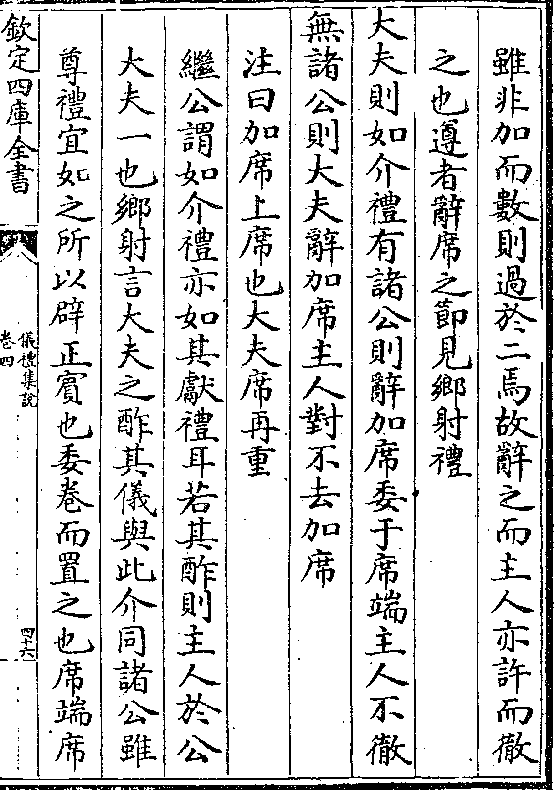 雖非加而數則過於二焉故辭之而主人亦許而徹
之也遵者辭席之節見鄉射禮
大夫則如介禮有諸公則辭加席委于席端主人不徹
無諸公則大夫辭加席主人對不去加席
注曰加席上席也大夫席再重
繼公謂如介禮亦如其獻禮耳若其酢則主人於公
大夫一也鄉射言大夫之酢其儀與此介同諸公雖
尊禮宜如之所以辟正賓也委卷而置之也席端席
欽定四庫全書
儀禮集說
卷四
四十六